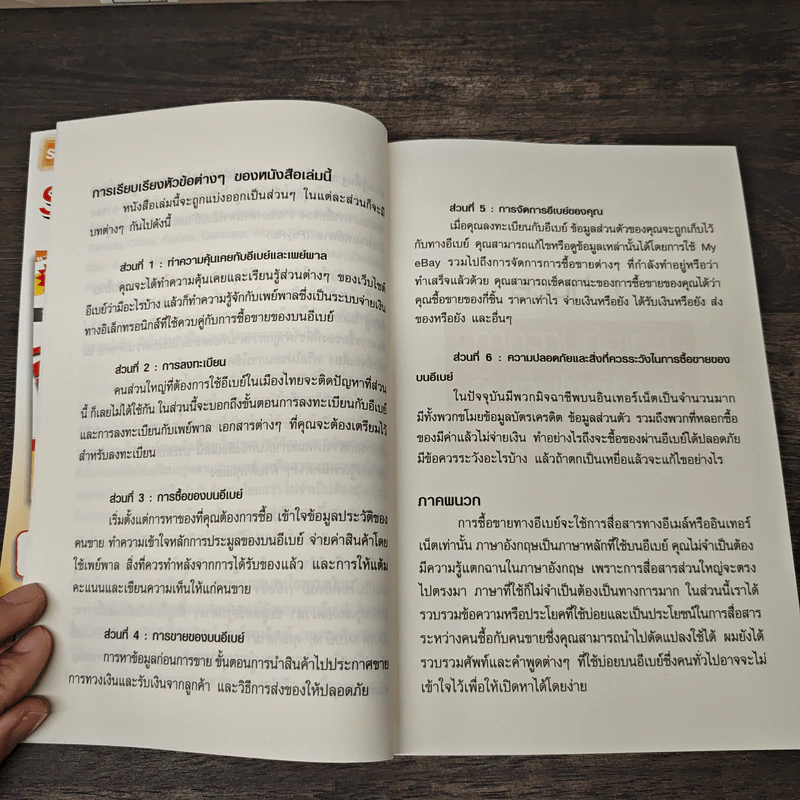 การเรียบเรียงหัวข้อต่างๆ ของหนังสือเล่มนี้
หนังสือเล่มนี้จะถูกแบ่งออกเป็นส่วนๆ ในแต่ละส่วนก็จะมี
บทต่างๆ กันไปดังนี้
ส่วนที่ 1 : ทำความคุ้นเคยกับอีเบย์และเพย์พาล
คุณจะได้ทำความคุ้นเคยและเรียนรู้ส่วนต่างๆ ของเว็บไซต์
อีเบย์ว่ามีอะไรบ้าง แล้วก็ทำความรู้จักกับเพย์พาลซึ่งเป็นระบบจ่ายเงิน
ทางอิเล็กทรอนิกส์ที่ใช้ควบคู่กับการซื้อขายของบนอีเบย์
ส่วนที่ 2 : การลงทะเบียน
คนส่วนใหญ่ที่ต้องการใช้อีเบย์ในเมืองไทยจะติดปัญหาที่ส่วน
นี้ ก็เลยไม่ได้ใช้กัน ในส่วนนี้จะบอกถึงขั้นตอนการลงทะเบียนกับอีเบย์
และการลงทะเบียนกับเพย์พาล เอกสารต่างๆ ที่คุณจะต้องเตรียมไว้
สำหรับลงทะเบียน
ส่วนที่ 3 : การซื้อของบนอีเบย์
เริ่มตั้งแต่การหาของที่คุณต้องการซื้อ เข้าใจข้อมูลประวัติของ
คนขาย ทำความเข้าใจหลักการประมูลของบนอีเบย์ จ่ายค่าสินค้าโดย
ใช้เพย์พาล สิ่งที่ควรทำหลังจากการได้รับของแล้ว และการให้แต้ม
คะแนนและเขียนความเห็นให้แก่คนขาย
ส่วนที่ 4 : การขายของบนอีเบย์
การหาข้อมูลก่อนการขาย ขั้นตอนการนำสินค้าไปประกาศขาย
การทวงเงินและรับเงินจากลูกค้า และวิธีการส่งของให้ปลอดภัย
ส่วนที่ 5 : การจัดการอีเบย์ของคุณ
เมื่อคุณลงทะเบียนกับอีเบย์ ข้อมูลส่วนตัวของคุณจะถูกเก็บไว้
กับทางอีเบย์ คุณสามารถแก้ไขหรือดูข้อมูลเหล่านั้นได้โดยการใช้ My
eBay รวมไปถึงการจัดการการซื้อขายต่างๆ ที่กำลังทำอยู่หรือว่า
ทำเสร็จแล้วด้วย คุณสามารถเช็คสถานะของการซื้อขายของคุณได้ว่า
คุณซื้อขายของกี่ชิ้น ราคาเท่าไร จ่ายเงินหรือยัง ได้รับเงินหรือยัง ส่ง
ของหรือยัง และอื่นๆ
ส่วนที่ 6 : ความปลอดภัยและสิ่งที่ควรระวังในการซื้อขายของ
บนอีเบย์
ในปัจจุบันมีพวกมิจฉาชีพบนอินเทอร์เน็ตเป็นจำนวนมาก
มีทั้งพวกขโมยข้อมูลบัตรเครดิต ข้อมูลส่วนตัว รวมถึงพวกที่หลอกซื้อ
ของมีค่าแล้วไม่จ่ายเงิน ทำอย่างไรถึงจะซื้อของผ่านอีเบย์ได้ปลอดภัย
มีข้อควรระวังอะไรบ้าง แล้วถ้าตกเป็นเหยื่อแล้วจะแก้ไขอย่างไร
ภาคผนวก
การซื้อขายทางอีเบย์จะใช้การสื่อสารทางอีเมล์หรืออินเทอร์
เน็ตเท่านั้น ภาษาอังกฤษเป็นภาษาหลักที่ใช้บนอีเบย์ คุณไม่จำเป็นต้อง
มีความรู้แตกฉานในภาษาอังกฤษ เพราะการสื่อสารส่วนใหญ่จะตรง
ไปตรงมา ภาษาที่ใช้ก็ไม่จำเป็นต้องเป็นทางการมาก ในส่วนนี้เราได้
รวบรวมข้อความหรือประโยคที่ใช้บ่อยและเป็นประโยชน์ในการสื่อสาร
ระหว่างคนซื้อกับคนขายซึ่งคุณสามารถนำไปดัดแปลงใช้ได้ ผมยังได้
รวบรวมศัพท์และคำพูดต่างๆ ที่ใช้บ่อยบนอีเบย์ซึ่งคนทั่วไปอาจจะไม่
เข้าใจไว้เพื่อให้เปิดหาได้โดยง่าย